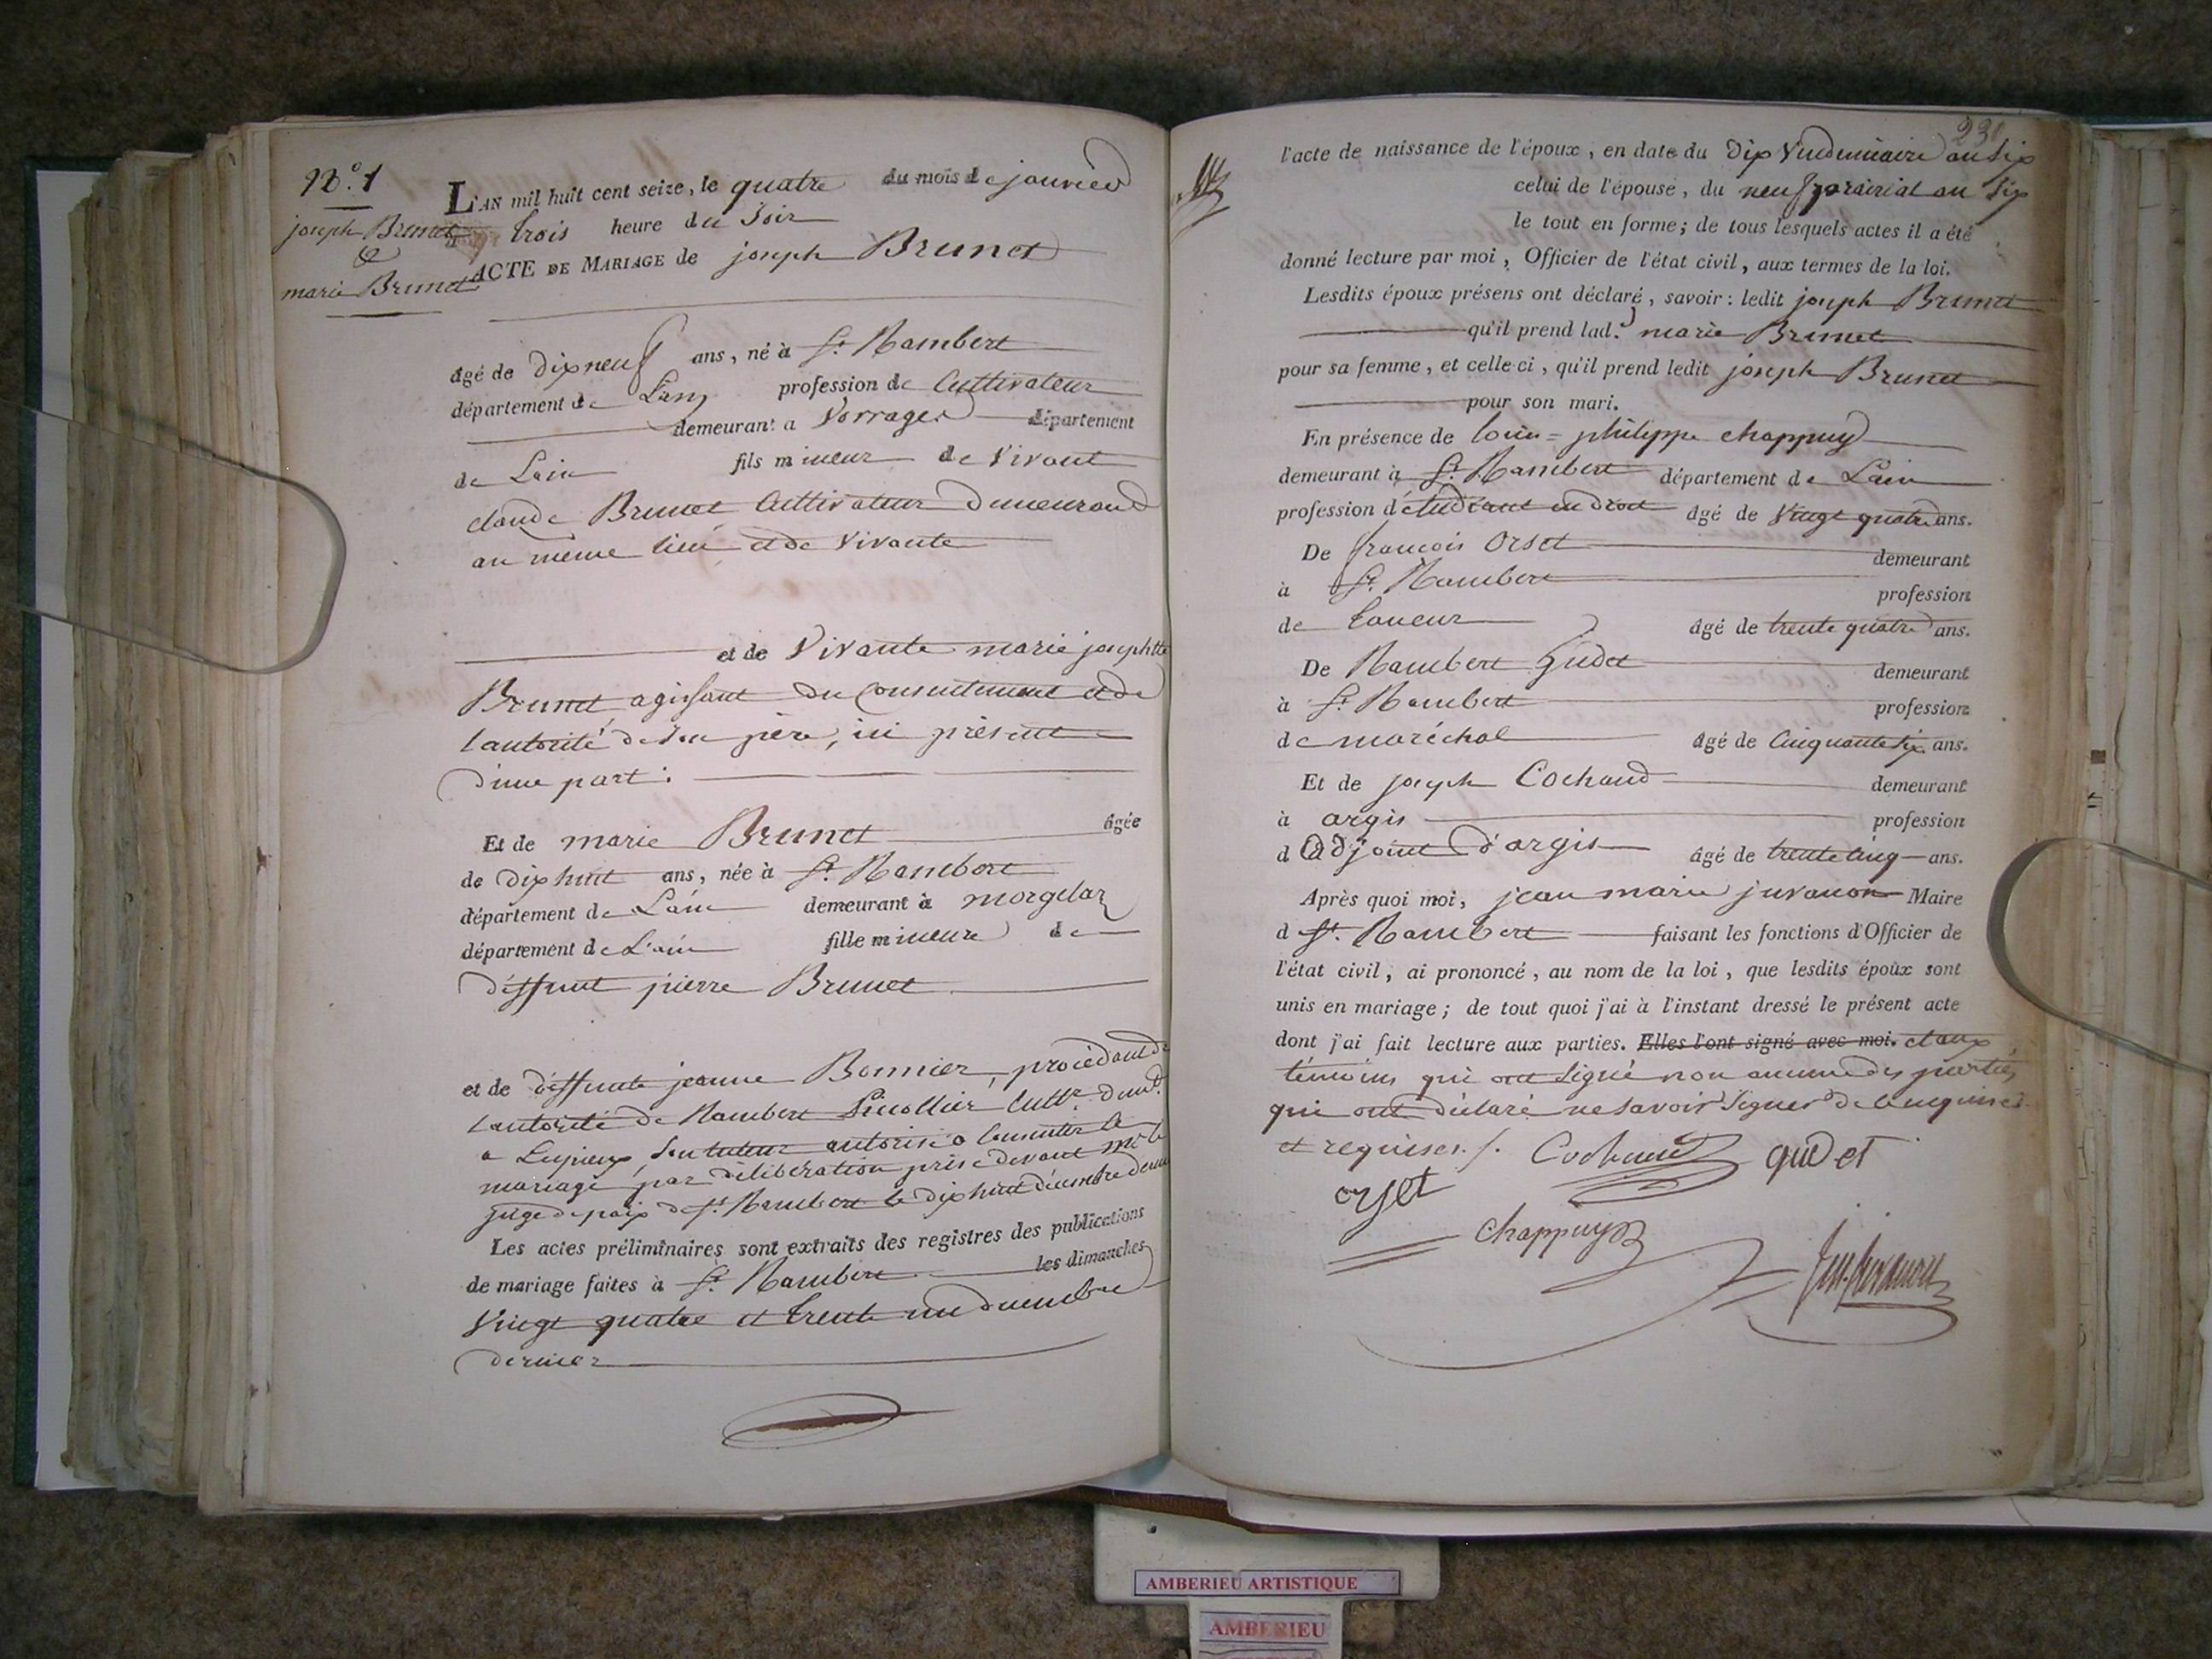 N.° 1
joseph Brunet
&
marie Brunet
L'AN mil huit cent seize, le quatre du mois de janvier
trois heure du soir
ACTE DE MARIAGE de joseph Brunet
âgé de dixneuf ans, né à St. Rambert
département de Lain profession de Cultivateur
demeurant a Vorrages département
de Lain fils mineur de vivant
claude Brunet Cultivateur demeurand
au même lieu et de vivante
et de vivante marie josephtte
Brunet agissant du consentement et de
lautorité de son père, ici présent
d'une part.
Et de marie Brunet âgée
de dix huit ans, née à St. Rambert
département de Lain demeurant à morgelaz
département de L'ain fille mineure de
deffunt pierre Brunet
et de deffunte jeanne Bonnier, procédant de
lautorité de Rambert Cultr. demt.
a Lupieux, son tuteur autorisé a consentir le
mariage par délibération prise devant mr. le
juge de paix de St. Rambert le dix huit décembre dernier
Les actes préliminaires sont extraits des registres des publications
de mariage faites à St. Rambert les dimanches
vingt quatre et trente un decembre
dernier
231
l'acte de naissance de l'époux, en date du dix vendemiaire an six
celui de l'épouse, du neuf prairial an six
le tout en forme; de tous lesquels actes il a été
donné lecture par moi, Officier de l'état civil, aux termes de la loi.
Lesdits époux présens ont déclaré, savoir: ledit joseph Brunet
qu'il prend lad. marie Brunet
pour sa femme, et celle ci, qu'il prend ledit joseph Brunet
pour son mari.
En présence de louis=philippe chappuy
demeurant à St. Rambert département de Lain
profession d'étudiant en droit âgé de vingt quatre ans.
De francois Orset demeurant
à St. Rambert profession
de taneur âgé de trente quatre ans.
De Rambert Gudet demeurant
à St. Rambert profession
de maréchal âgé de Cinquante six ans.
Et de joseph Cochaud demeurant
à argis profession
d adjoint d'argis âgé de trente cinq ans.
Après quoi moi, jean marie juvanon Maire
d St. Rambert faisant les fonctions d'Officier de
l'état civil, ai prononcé, au nom de la loi, que lesdits époux sont
unis en mariage; de tout quoi j'ai à l'instant dressé le présent acte
dont j'ai fait lecture aux parties. Elles l'ont signé avec moi. et aux
témoins qui ont signé non aucune des parties
qui ont déclaré ne savoir signer de ce enquises
et requises ./.
Cochaud
gudet
orset
chappuy
jm. juvanon
AMBERIEU ARTISTIQUE
AMBERIEU